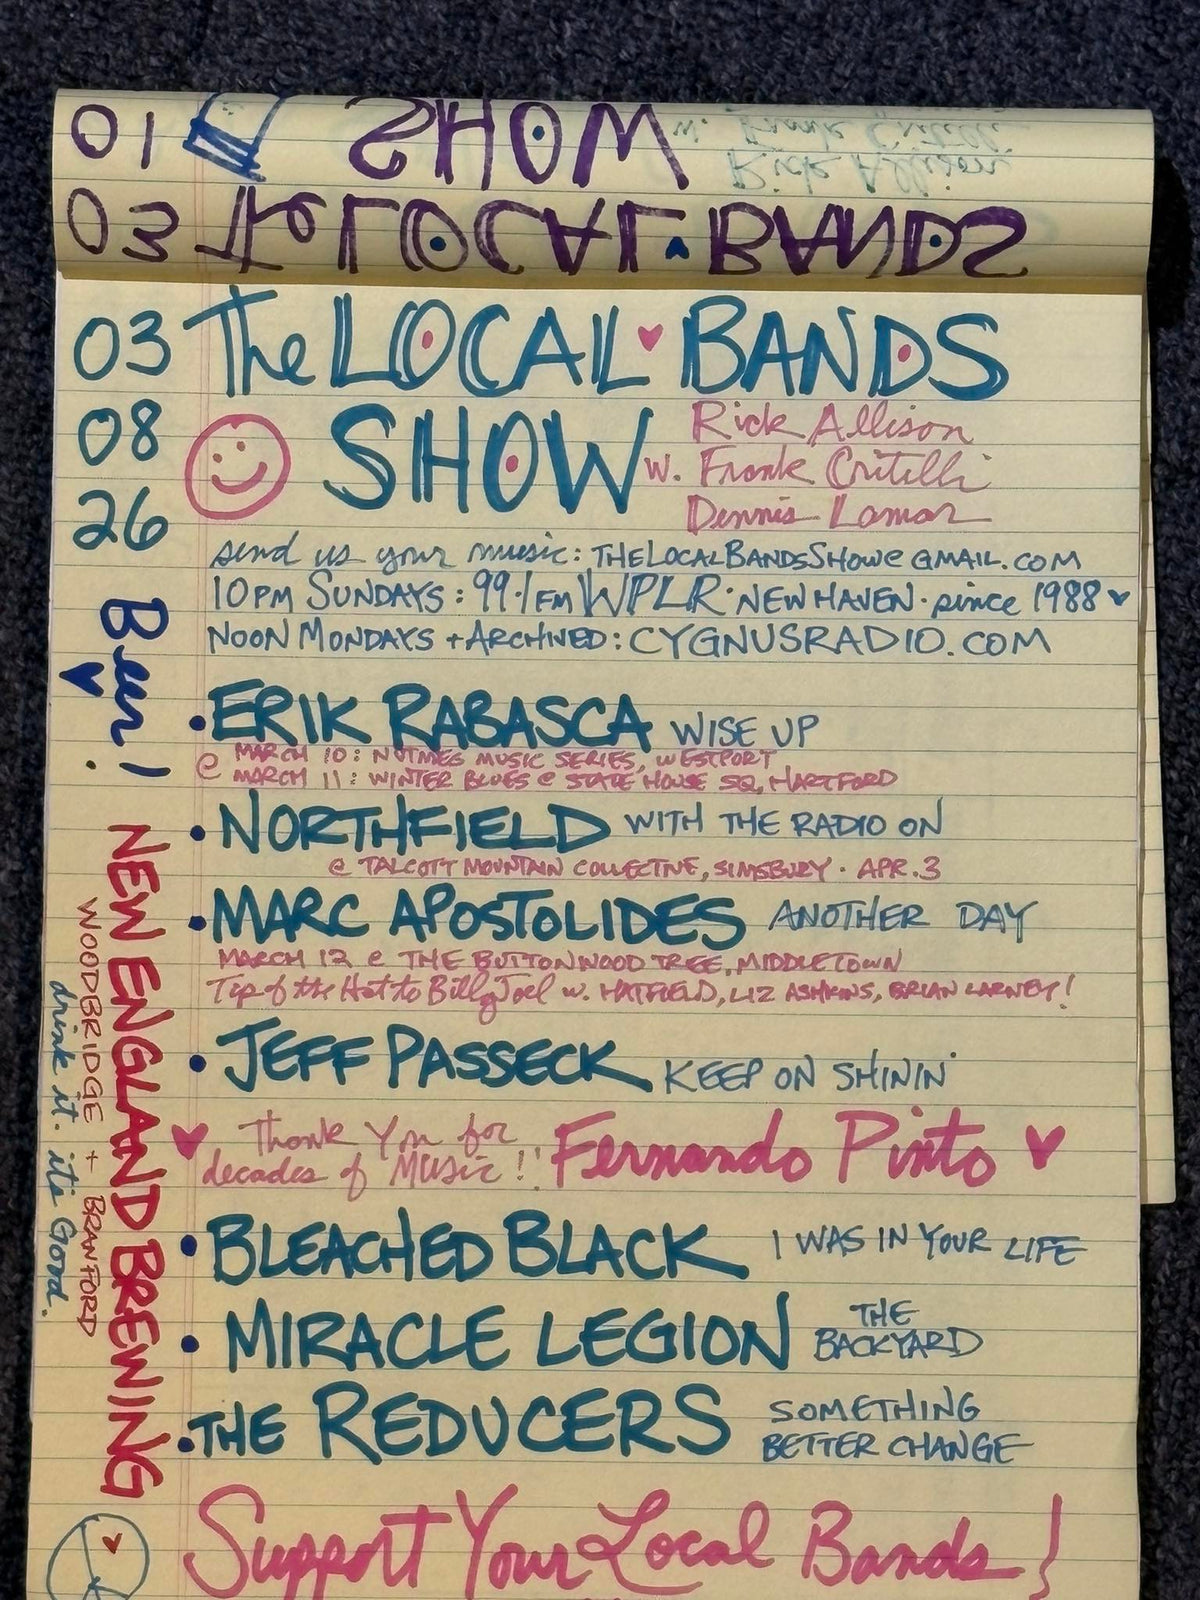 01 SHOW w. Frank Critelli
Rick Allison
03 The LOCAL BANDS
03 The LOCAL BANDS
08 SHOW w. Rick Allison
Frank Critelli
26 Dennis Lamar
send us your music: THELOCALBANDSSHOW@GMAIL.COM
10PM SUNDAYS: 99.1 FM WPLR · NEW HAVEN · since 1988
NOON MONDAYS + ARCHIVED: CYGNUSRADIO.COM
• ERIK RABASCA WISE UP
@ MARCH 10: NUTMEG MUSIC SERIES, WESTPORT
MARCH 11: WINTER BLUES @ STATE HOUSE SQ, HARTFORD
• NORTHFIELD WITH THE RADIO ON
@ TALCOTT MOUNTAIN COLLECTIVE, SIMSBURY · APR. 3
• MARC APOSTOLIDES ANOTHER DAY
MARCH 12 @ THE BUTTONWOOD TREE, MIDDLETOWN
Tip of the Hat to Billy Joel w. HATFIELD, LIZ ASHKINS, BRIAN LARNEY!
• JEFF PASSECK KEEP ON SHININ'
Thank You for
decades of Music!! Fernando Pinto
• BLEACHED BLACK I WAS IN YOUR LIFE
• MIRACLE LEGION THE
BACKYARD
• THE REDUCERS SOMETHING
BETTER CHANGE
Support Your Local Bands!
Beer!
NEW ENGLAND BREWING
WOODBRIDGE + BRANFORD
drink it. it's Good.